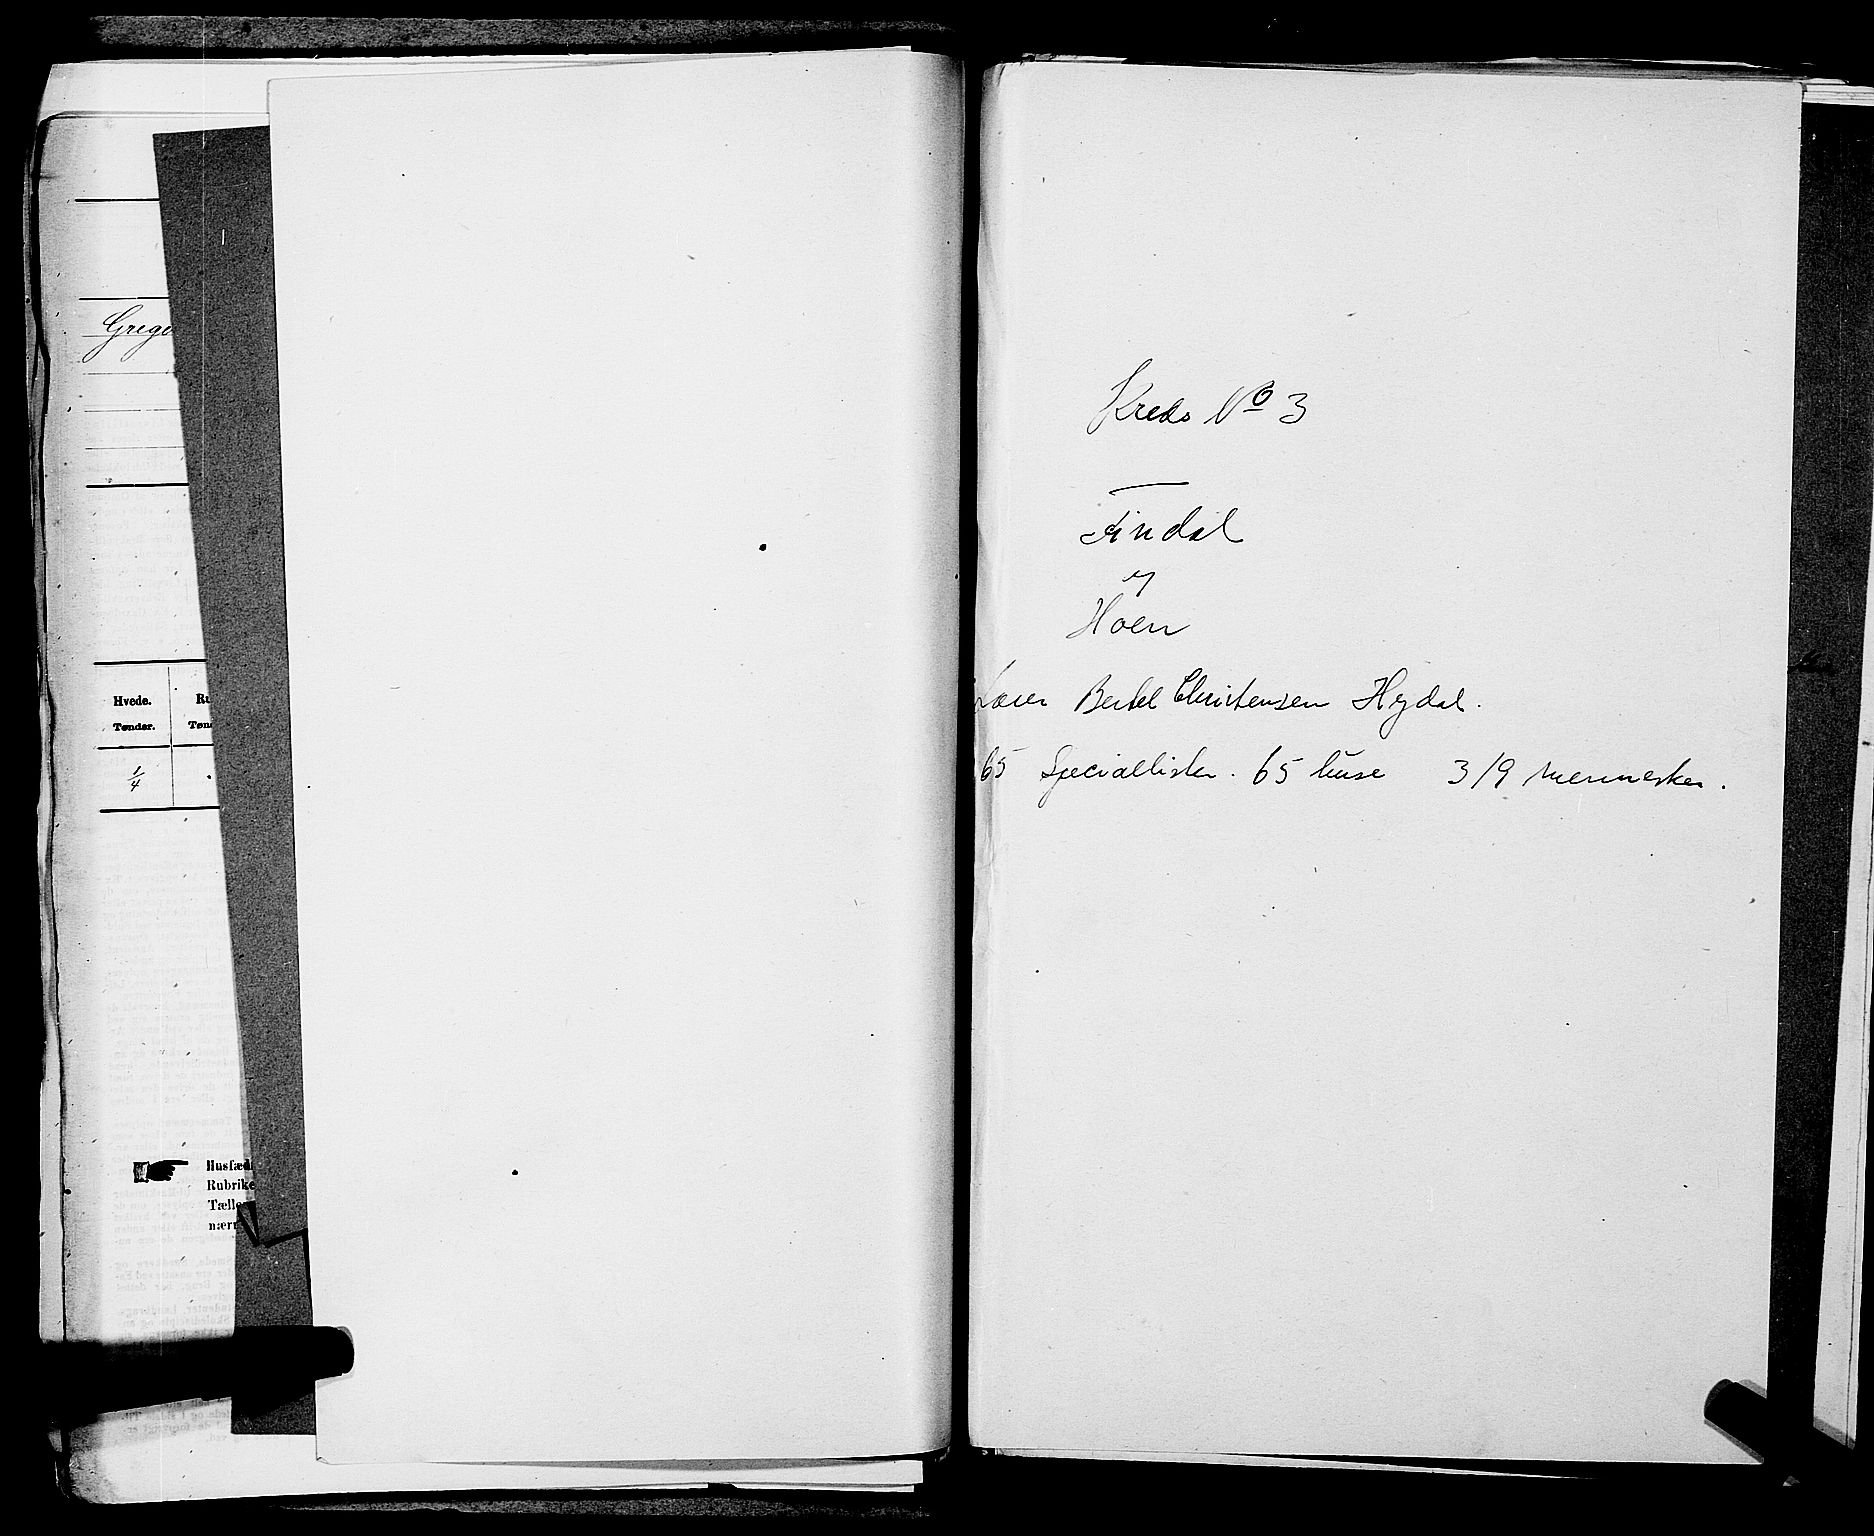 Grego
Hvede. Ru
Tønder. Tønd
1/4 .
Husfæd
Rubrike
Tælle
nærv
Kreds No 3
Findal
og
Hoen
Lærer Bertel Christensen Hydal.
65 Speciallister. 65 huse 319 mennesker.